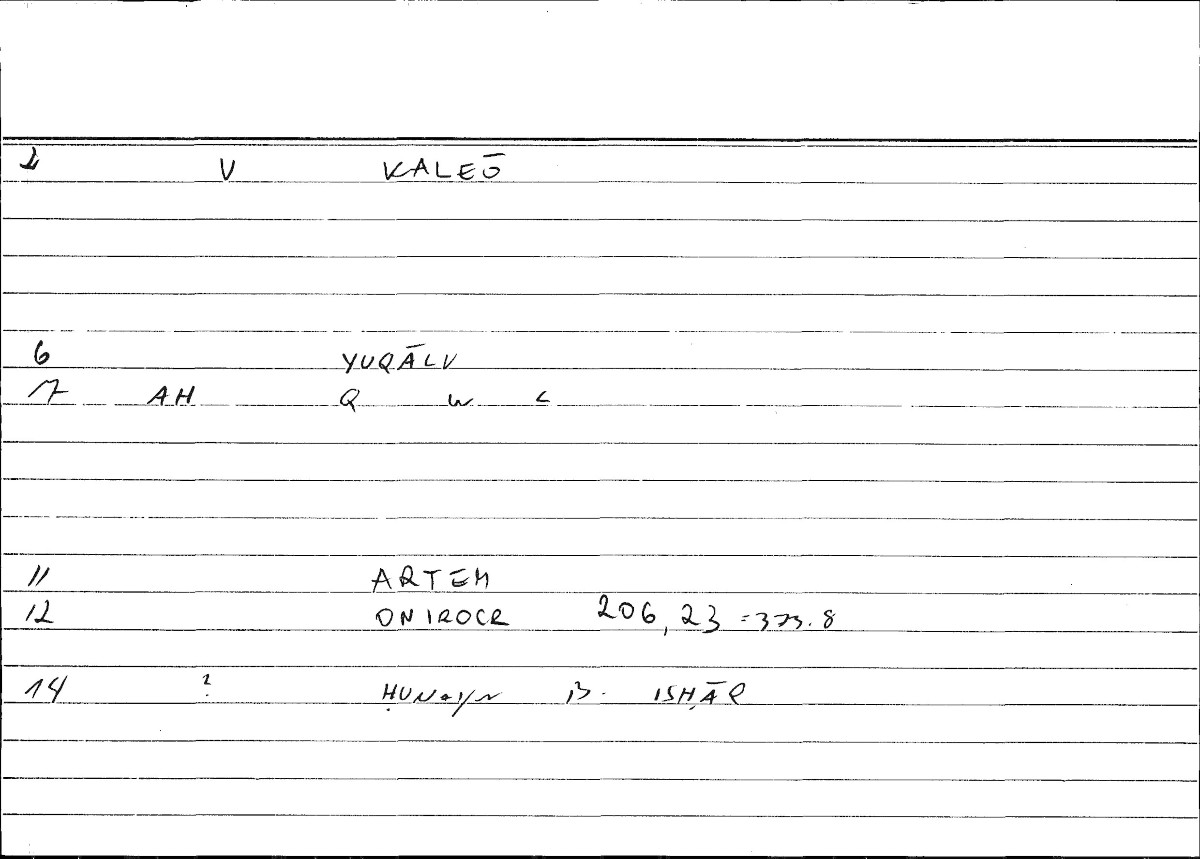 1 V KALEŌ
6 YUQĀLU
7 AH Q W L
11 ARTEM
12 ONIROCR 206,23 = 373.8
14 ? ḤUNAYN B. ISḤĀQ